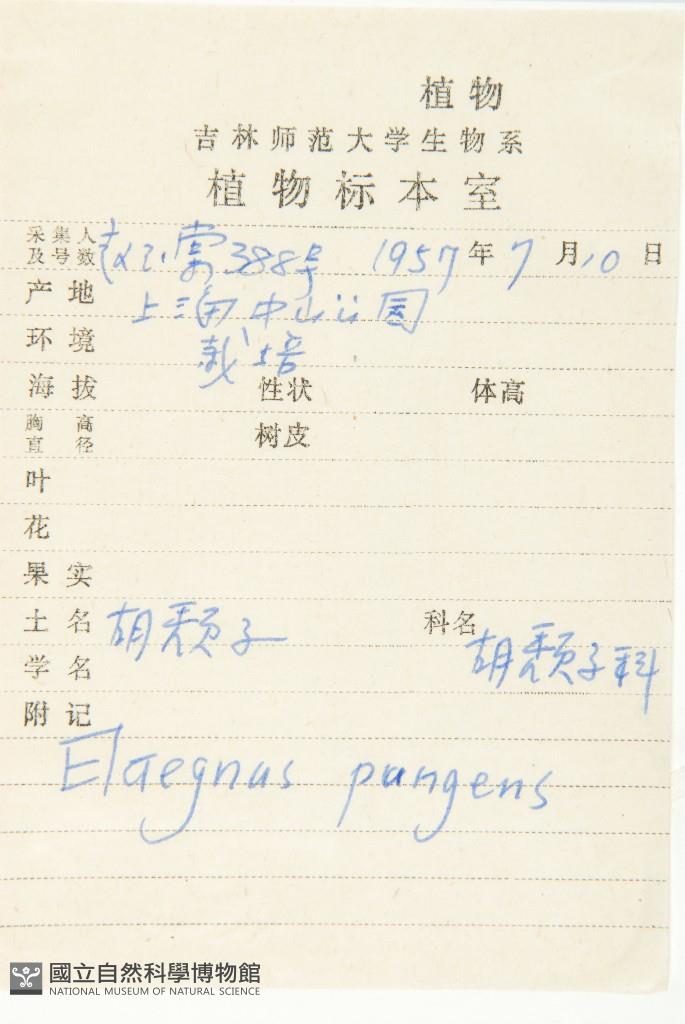 植物
吉林师范大学生物系
植物标本室
采集人及号数 赵 棠 388号 1957年7月10日
产地 上海中山公园
环境 栽培
海拔 性状 体高
胸高直径 树皮
叶
花
果实
土名 胡颓子 科名 胡颓子科
学名
附记
Elaegnus pungens
國立自然科學博物館
NATIONAL MUSEUM OF NATURAL SCIENCE